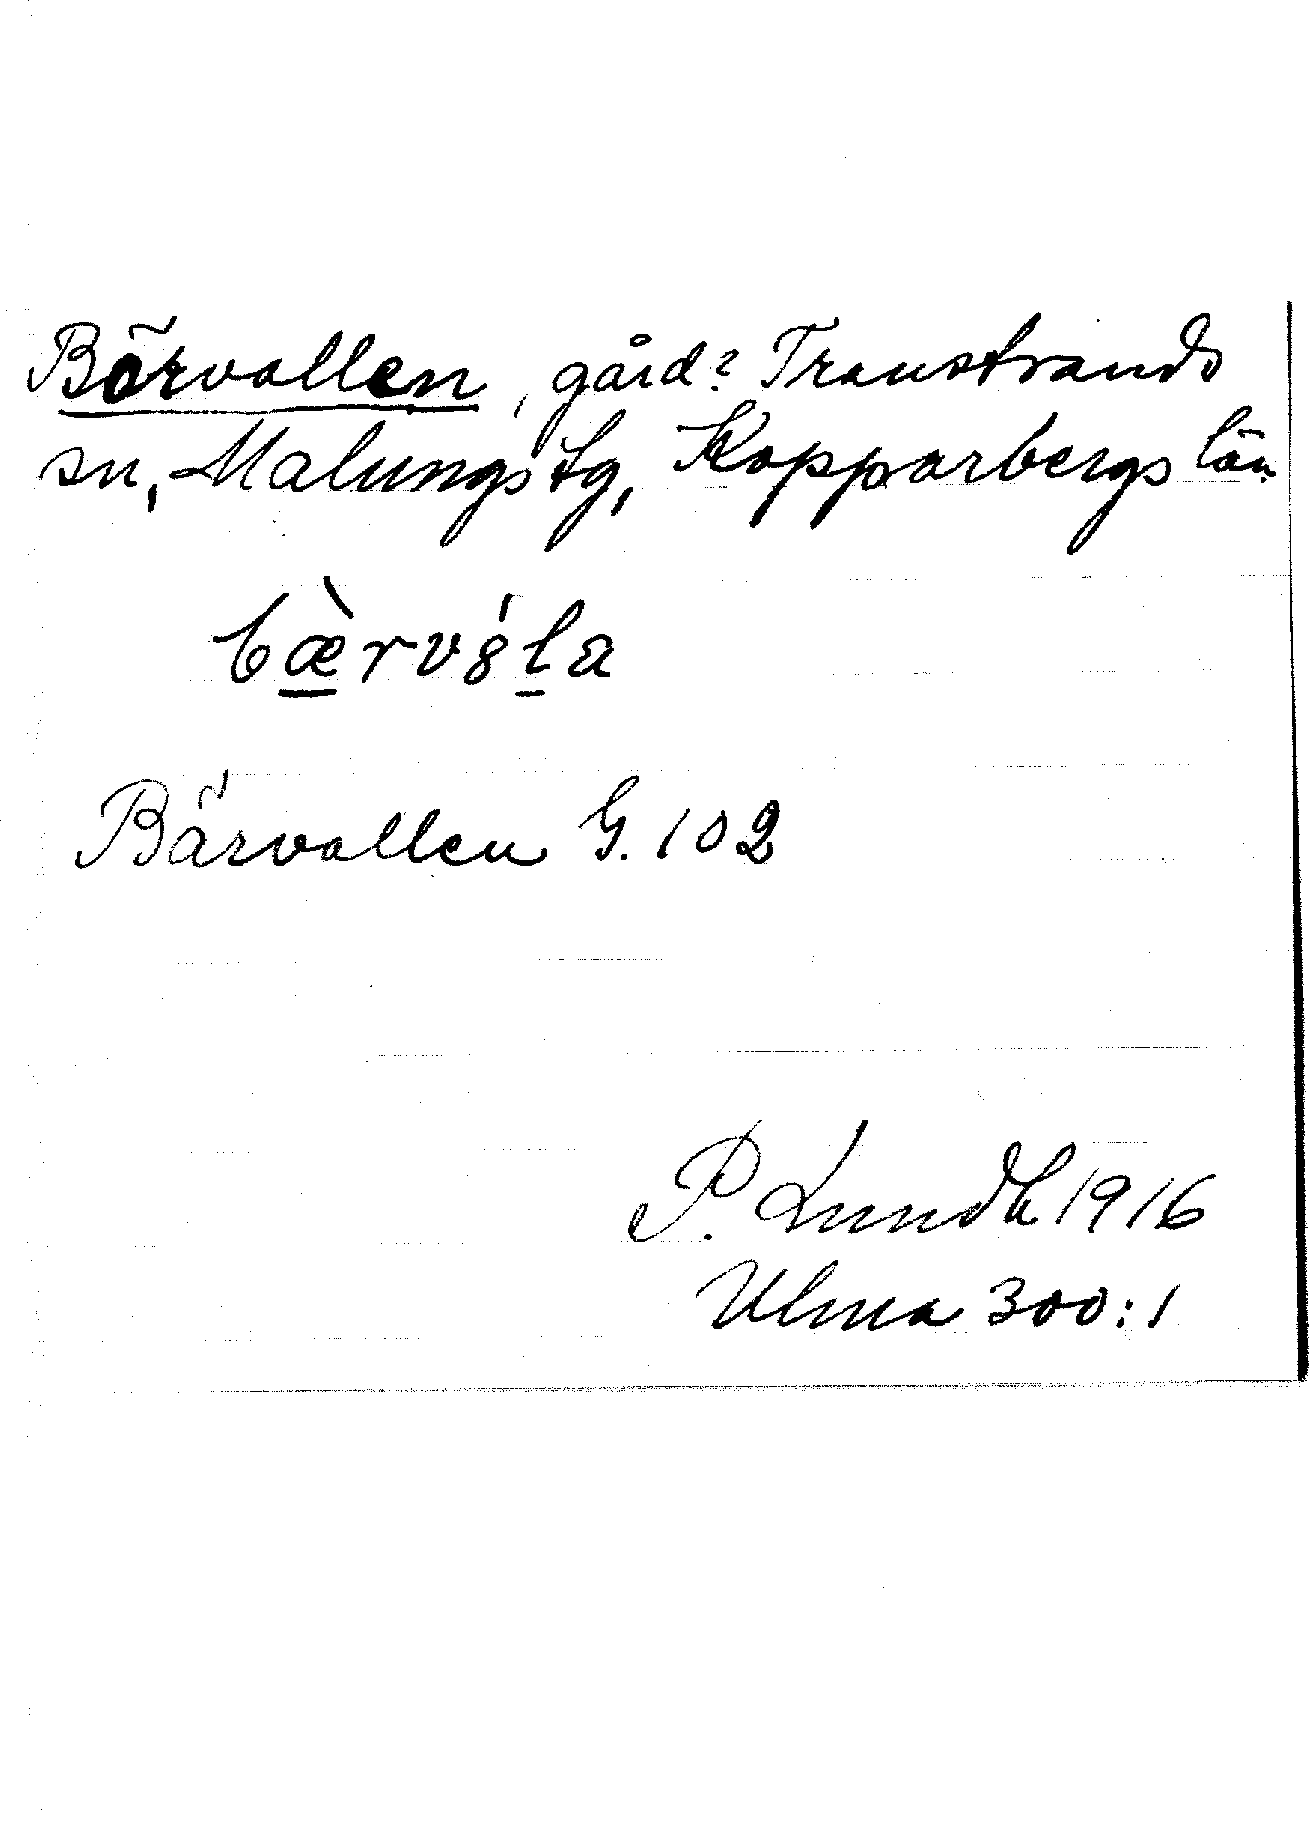 Bärvallen, gård? Transtrands
sn, Malungs tg, Kopparbergs län
bæ̀rvǻla
Bärvallen G. 102
P. Lundh 1916
Ulma 300:1